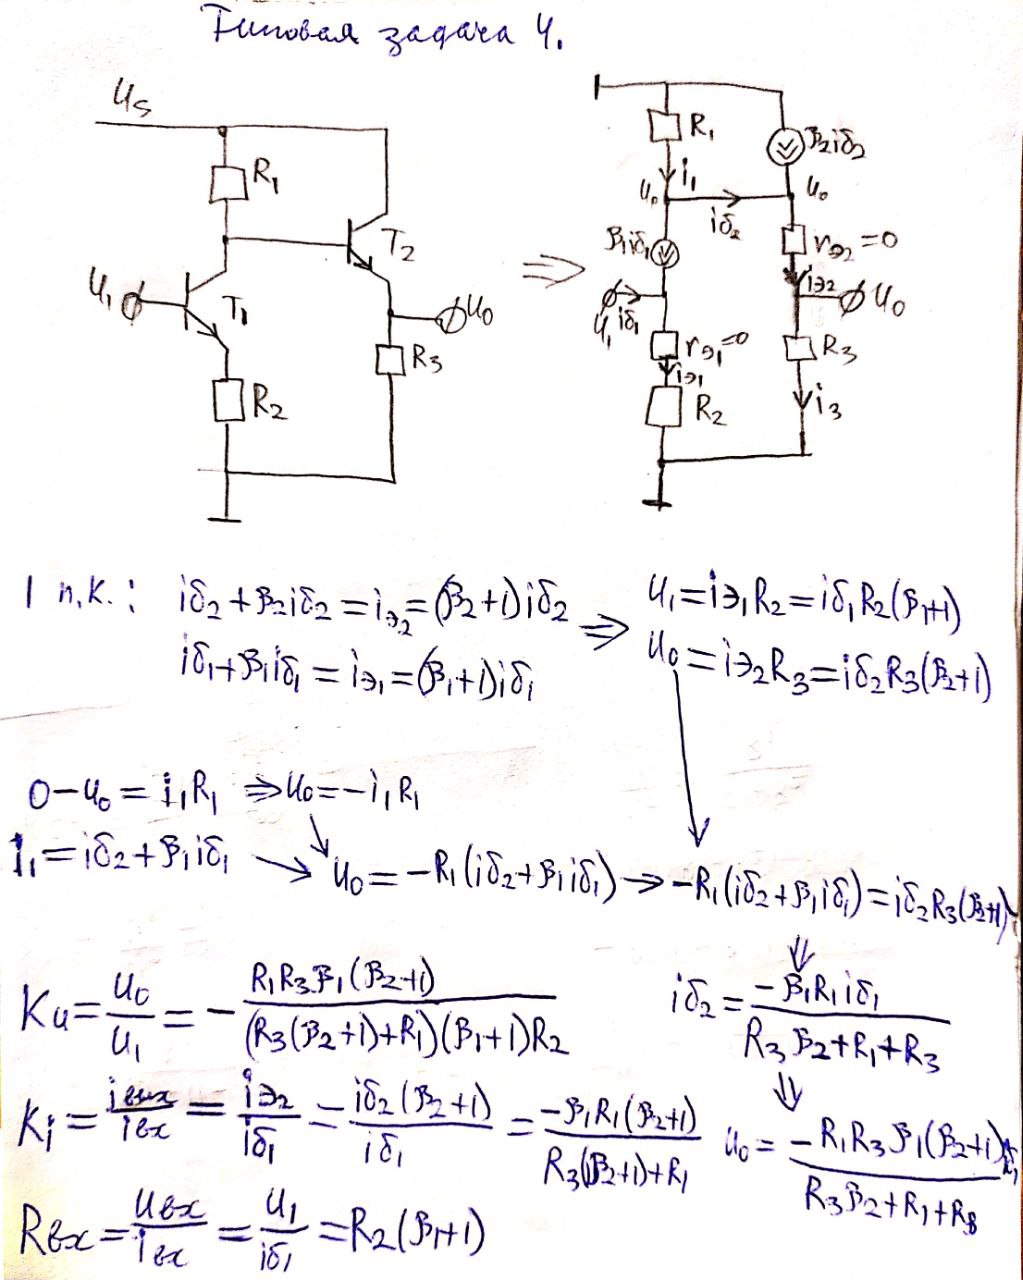 Типовая задача 4.
Us
R₁
T₂
U₁
T₁
U₀
R₃
R₂
⇒
R₁
β₂iб₂
i₁
U₀
U₀
iб₂
β₁iб₁
rэ₂=0
iэ₂
U₀
U₁
iб₁
rэ₁=0
iэ₁
R₂
R₃
i₃
I п.к.: iб₂+β₂iб₂=iэ₂=(β₂+1)iб₂
iб₁+β₁iб₁=iэ₁=(β₁+1)iб₁
⇒
U₁=iэ₁R₂=iб₁R₂(β₁+1)
U₀=iэ₂R₃=iб₂R₃(β₂+1)
0-U₀=i₁R₁ ⇒ U₀=-i₁R₁
i₁=iб₂+β₁iб₁ → U₀=-R₁(iб₂+β₁iб₁) → -R₁(iб₂+β₁iб₁)=iб₂R₃(β₂+1)
iб₂=-β₁R₁iб₁/R₃β₂+R₁+R₃
Ku=U₀/U₁=-R₁R₃β₁(β₂+1)/(R₃(β₂+1)+R₁)(β₁+1)R₂
Ki=iвых/iвх=iэ₂/iб₁=iб₂(β₂+1)/iб₁=-β₁R₁(β₂+1)/R₃(β₂+1)+R₁
U₀=-R₁R₃β₁(β₂+1)/R₃β₂+R₁+R₃
Rвх=Uвх/iвх=U₁/iб₁=R₂(β₁+1)